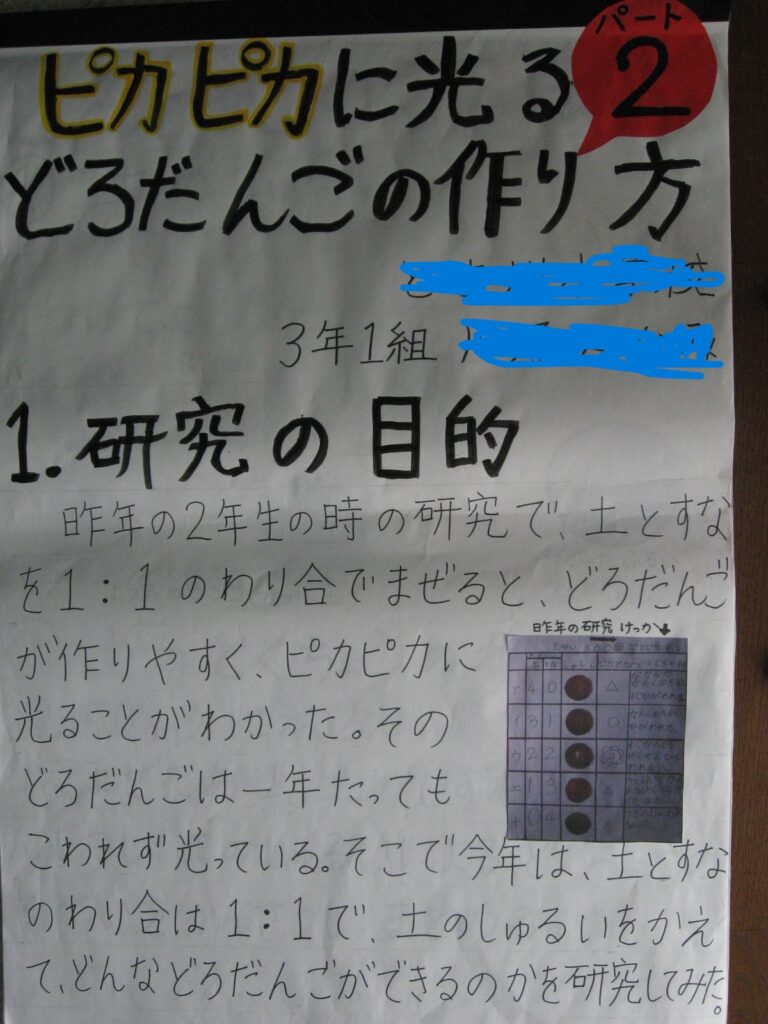 ピカピカに光る
パート
2
どろだんごの作り方
3年1組
1.研究の目的
昨年の2年生の時の研究で、土とすな
を1:1のわり合でまぜると、どろだんご
が作りやすく、ピカピカに
光ることがわかった。その
どろだんごは一年たっても
こわれず光っている。そこで今年は、土とすな
のわり合は1:1で、土のしゅるいをかえ
て、どんなどろだんごができるのかを研究してみた。
昨年の研究けっか
ア 4 0 △
イ 3 1 ○
ウ 2 2
エ 1 3 △
オ 0 4